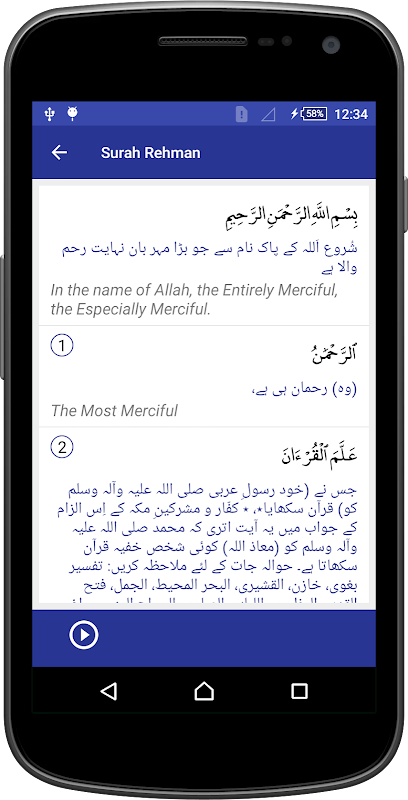 58% 12:34
Surah Rehman
بِسْمِ اللَّهِ الرَّحْمَٰنِ الرَّحِيمِ
شُروع اَللہ کے پاک نام سے جو بڑا مہر بان نہایت رحم
والا ہے
In the name of Allah, the Entirely Merciful,
the Especially Merciful.
1
ٱلرَّحْمَٰنُ
(وہ) رحمان ہی ہے،
The Most Merciful
2
عَلَّمَ ٱلْقُرْءَانَ
جس نے (خود رسول عربی صلی اللہ علیہ وآلہ وسلم
کو) قرآن سکھایا٭، ٭ کفّار و مشرکینِ مکہ کے اِس الزام
کے جواب میں یہ آیت اتری کہ محمد صلی اللہ علیہ
وآلہ وسلم کو (معاذ اللہ) کوئی شخص خفیہ قرآن
سکھاتا ہے۔ حوالہ جات کے لئے ملاحظہ کریں: تفسیر
بغوی، خازن، القشیری، البحر المحیط، الجمل، فتح